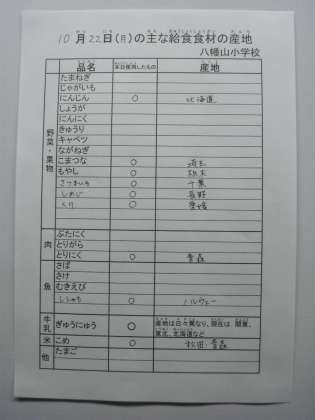 10月22日(月)の主な給食食材の産地
八幡山小学校
品名 本日使用したもの 産地
野菜・果物
たまねぎ
じゃがいも
にんじん ○ 北海道
しょうが
にんにく
きゅうり
キャベツ
ながねぎ
こまつな ○ 埼玉
もやし ○ 栃木
さつまいも ○ 千葉
しめじ ○ 長野
くり ○ 愛媛
肉
ぶたにく
とりがら
とりにく ○ 青森
魚
さば
さけ
むきえび
ししゃも ○ ノルウェー
牛乳 ぎゅうにゅう ○ 産地は日々異なり、現在は 関東、
東北、北海道など
米 こめ ○ 秋田・青森
他 たまご